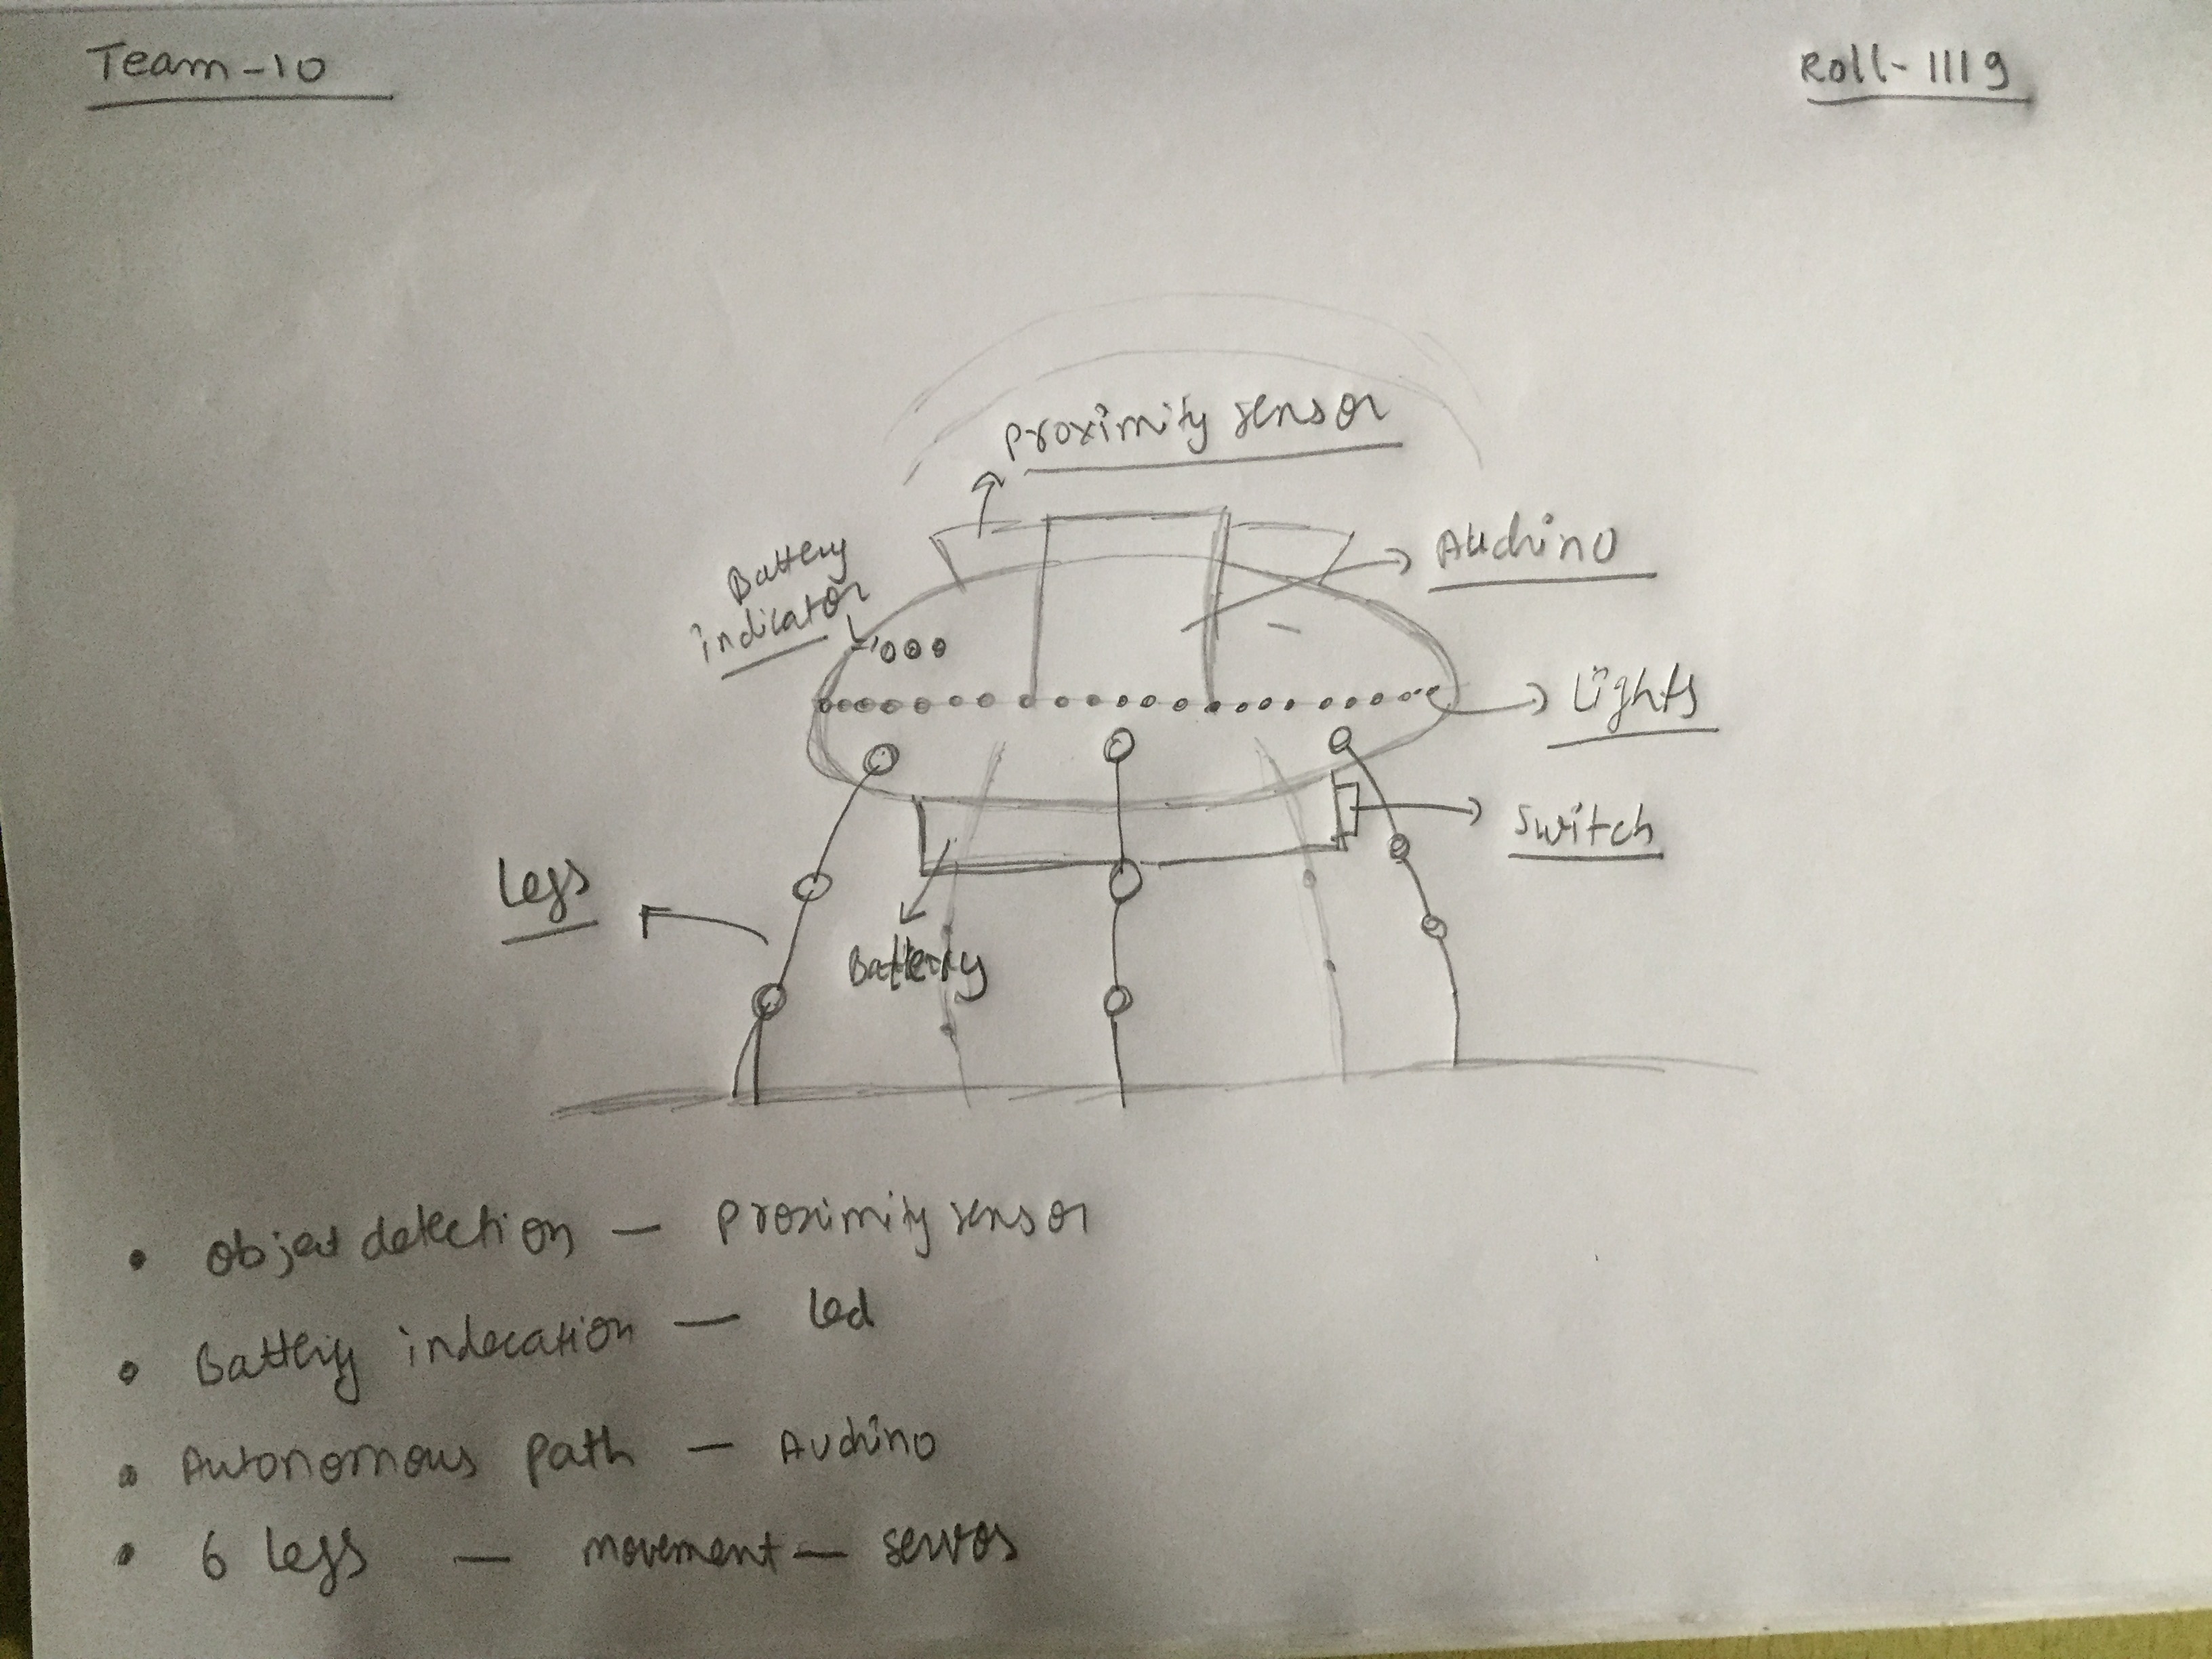 Team-10
Roll-1119
Proximity sensor
Battery
indicator
Audino
Lights
Switch
Legs
Battery
• Object detection — Proximity sensor
• Battery indecation — Led
• Autonomous path — Audino
• 6 Legs — movement — servos